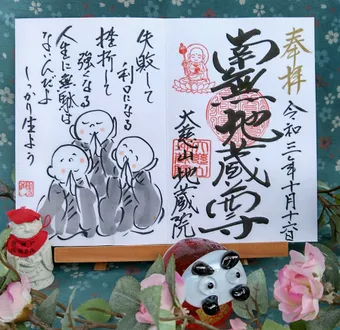 奉拝
令和三年十月十六日
南無地蔵尊
大慈山地蔵院
失敗して
利口になる
挫折して
強くなる
人生に無駄は
ないんだよ
しっかり生よう